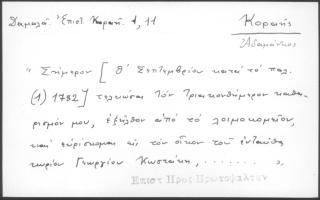 Δαμαλᾶ. Ἐπιστ. Κοραῆ 1, 11
Κοραῆς
Ἀδαμάντιος
" Σήμερον [ θ' Σεπτεμβρίου κατὰ τὸ παλ.
(1) 1782] τελειώσας τὸν τριακονθήμερον καθα-
ρισμόν μου, ἐξῆλθον ἀπὸ τὸ λοιμοκομεῖον,
καὶ εὑρίσκομαι εἰς τὸν οἶκον τοῦ ἐνταῦθα
κυρίου Γεωργίου Κωστάκη, ....... ",
Επιστ Προς Πρωτοψαλτην